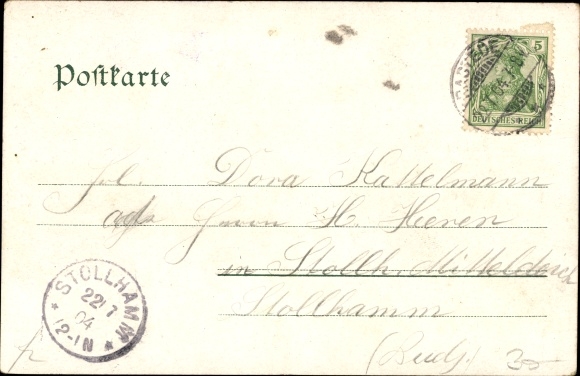 Postkarte
5
DEUTSCHES REICH
RASTEDE
Frl. Dora Kattelmann
Herrn H. Hieren
in Stollh. Mitteldeich
Stollhamm
STOLLHAMM
22/7
04
12-1N